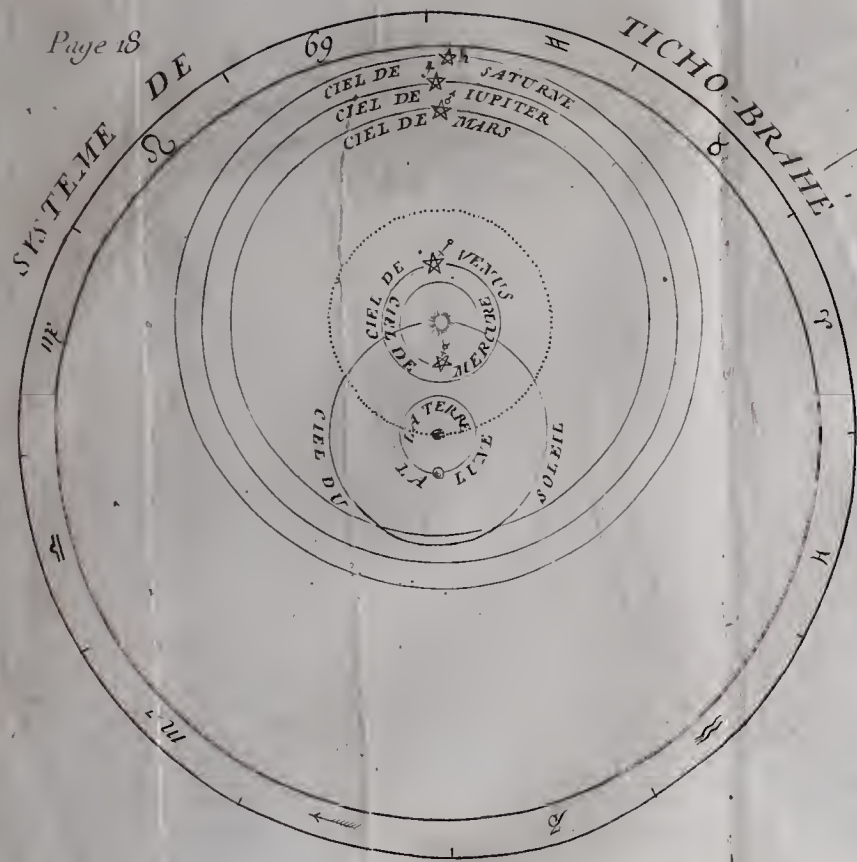 Page 18
SYSTEME DE TICHO-BRAHE
♋ ♊ ♉ ♈ ♓ ♒ ♑ ♐ ♏ ♎ ♍ ♌
CIEL DE SATURNE ♄
CIEL DE IUPITER ♃
CIEL DE MARS ♂
CIEL DE VENUS ♀
CIEL DE MERCURE ☿
LA TERRE
LA LUNE
CIEL DU SOLEIL